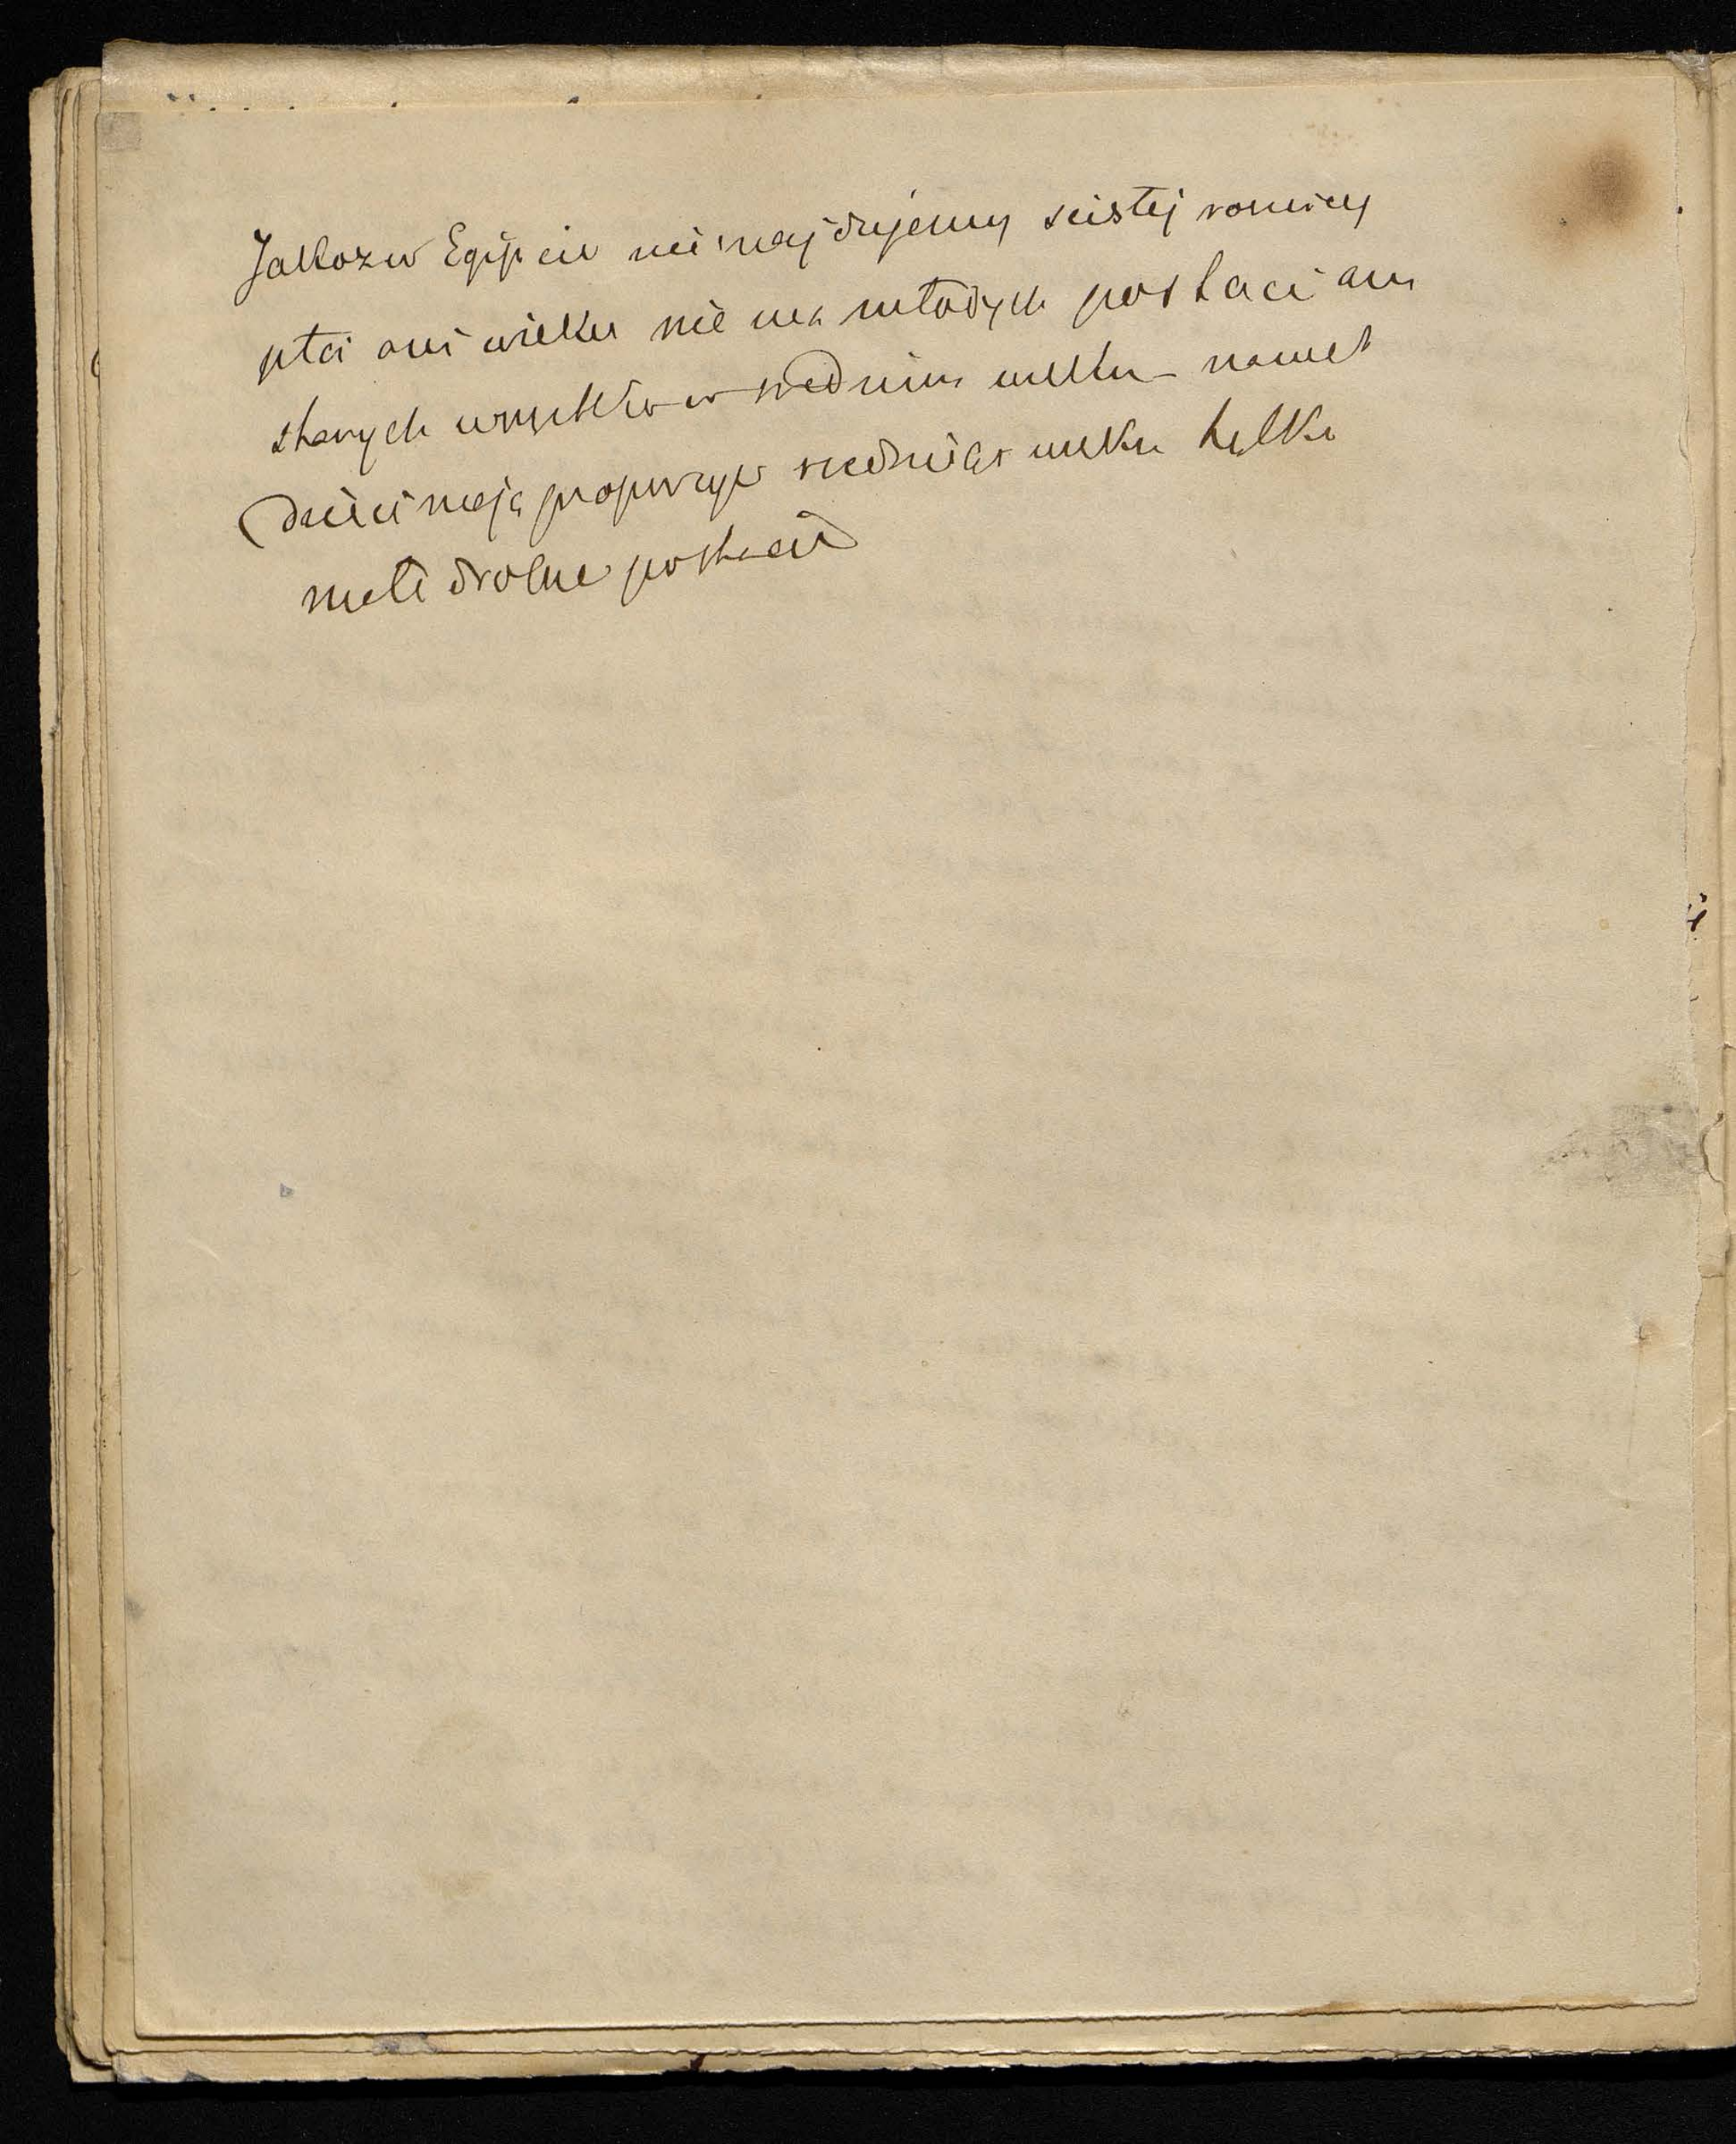 Jakoż w Egipcie nie znajdujemy scisłej roznicy
płci ani wieku nie ma młodych postaci ani
starych wszystko w srednim wieku – nawet
dzieci mają proporcye sredniego wieku tylko
małe drobne postacie